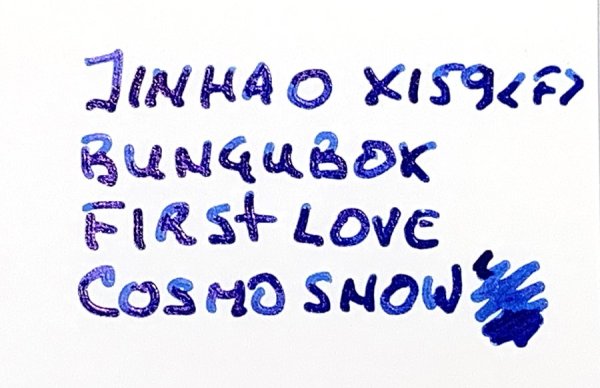 JINHAO X159<F>
BUNGUBOX
FIRST LOVE
COSMO SNOW